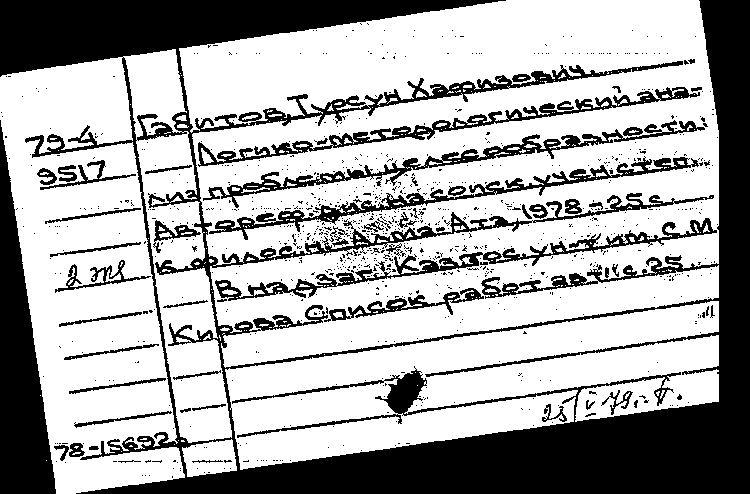 79-4
9517
Габитов, Турсун Хафизович.
Логико-методологический ана-
лиз проблемы целесообразности:
Автореф. дис. на соиск. учен. степ.
2 экз
к. филос. н. - Алма-Ата, 1978 - 25 с.
В надзаг: Каз гос. ун-т им. С. М.
Кирова. Список работ авт.: с. 25.
78-15692
25/V 79 г.